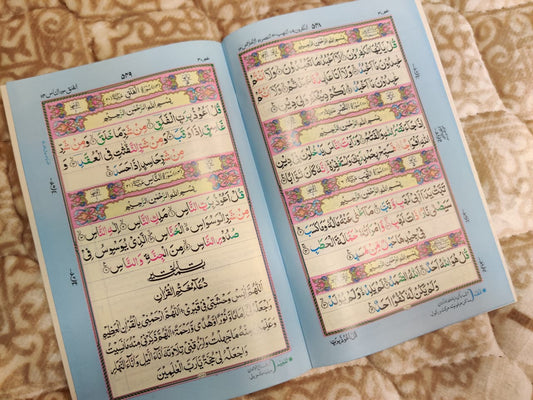 بِسْمِ اللهِ الرَّحْمٰنِ الرَّحِيْمِ
قُلْ يٰۤاَيُّهَا الْكٰفِرُوْنَ لَاۤ اَعْبُدُ مَا تَعْبُدُوْنَ وَلَاۤ اَنْتُمْ
عٰبِدُوْنَ مَاۤ اَعْبُدُ وَلَاۤ اَنَا عَابِدٌ مَّا عَبَدْتُّمْ وَلَاۤ اَنْتُمْ
عٰبِدُوْنَ مَاۤ اَعْبُدُ لَكُمْ دِيْنُكُمْ وَلِيَ دِيْنِ
بِسْمِ اللهِ الرَّحْمٰنِ الرَّحِيْمِ
اِذَا جَآءَ نَصْرُ اللهِ وَالْفَتْحُ وَرَاَيْتَ النَّاسَ يَدْخُلُوْنَ فِيْ دِيْنِ
اللهِ اَفْوَاجًا فَسَبِّحْ بِحَمْدِ رَبِّكَ وَاسْتَغْفِرْهُ اِنَّهٗ كَانَ تَوَّابًا
بِسْمِ اللهِ الرَّحْمٰنِ الرَّحِيْمِ
تَبَّتْ يَدَاۤ اَبِيْ لَهَبٍ وَّتَبَّ مَاۤ اَغْنٰى عَنْهُ مَالُهٗ وَمَا كَسَبَ
سَيَصْلٰى نَارًا ذَاتَ لَهَبٍ وَّامْرَاَتُهٗ حَمَّالَةَ الْحَطَبِ
فِيْ جِيْدِهَا حَبْلٌ مِّنْ مَّسَدٍ
بِسْمِ اللهِ الرَّحْمٰنِ الرَّحِيْمِ
قُلْ هُوَ اللهُ اَحَدٌ اَللهُ الصَّمَدُ لَمْ يَلِدْ وَلَمْ يُوْلَدْ
وَلَمْ يَكُنْ لَّهٗ كُفُوًا اَحَدٌ
٥٤٩
سُوْرَةُ الْفَلَقِ
بِسْمِ اللهِ الرَّحْمٰنِ الرَّحِيْمِ
قُلْ اَعُوْذُ بِرَبِّ الْفَلَقِ مِنْ شَرِّ مَا خَلَقَ وَمِنْ شَرِّ
غَاسِقٍ اِذَا وَقَبَ وَمِنْ شَرِّ النَّفّٰثٰتِ فِي الْعُقَدِ وَ
مِنْ شَرِّ حَاسِدٍ اِذَا حَسَدَ
سُوْرَةُ النَّاسِ
بِسْمِ اللهِ الرَّحْمٰنِ الرَّحِيْمِ
قُلْ اَعُوْذُ بِرَبِّ النَّاسِ مَلِكِ النَّاسِ اِلٰهِ النَّاسِ
مِنْ شَرِّ الْوَسْوَاسِ الْخَنَّاسِ الَّذِيْ يُوَسْوِسُ فِيْ
صُدُوْرِ النَّاسِ مِنَ الْجِنَّةِ وَالنَّاسِ
دُعَآءُ خَتْمِ الْقُرْاٰنِ
اَللّٰهُمَّ اٰنِسْ وَحْشَتِيْ فِيْ قَبْرِيْ اَللّٰهُمَّ ارْحَمْنِيْ بِالْقُرْاٰنِ الْعَظِيْمِ
وَاجْعَلْهُ لِيْ اِمَامًا وَّنُوْرًا وَّهُدًى وَّرَحْمَةً اَللّٰهُمَّ ذَكِّرْنِيْ مِنْهُ مَا نَسِيْتُ
وَعَلِّمْنِيْ مِنْهُ مَا جَهِلْتُ وَارْزُقْنِيْ تِلَاوَتَهٗ اٰنَآءَ الَّيْلِ وَاٰنَآءَ النَّهَارِ
وَاجْعَلْهُ لِيْ حُجَّةً يَّا رَبَّ الْعٰلَمِيْنَ